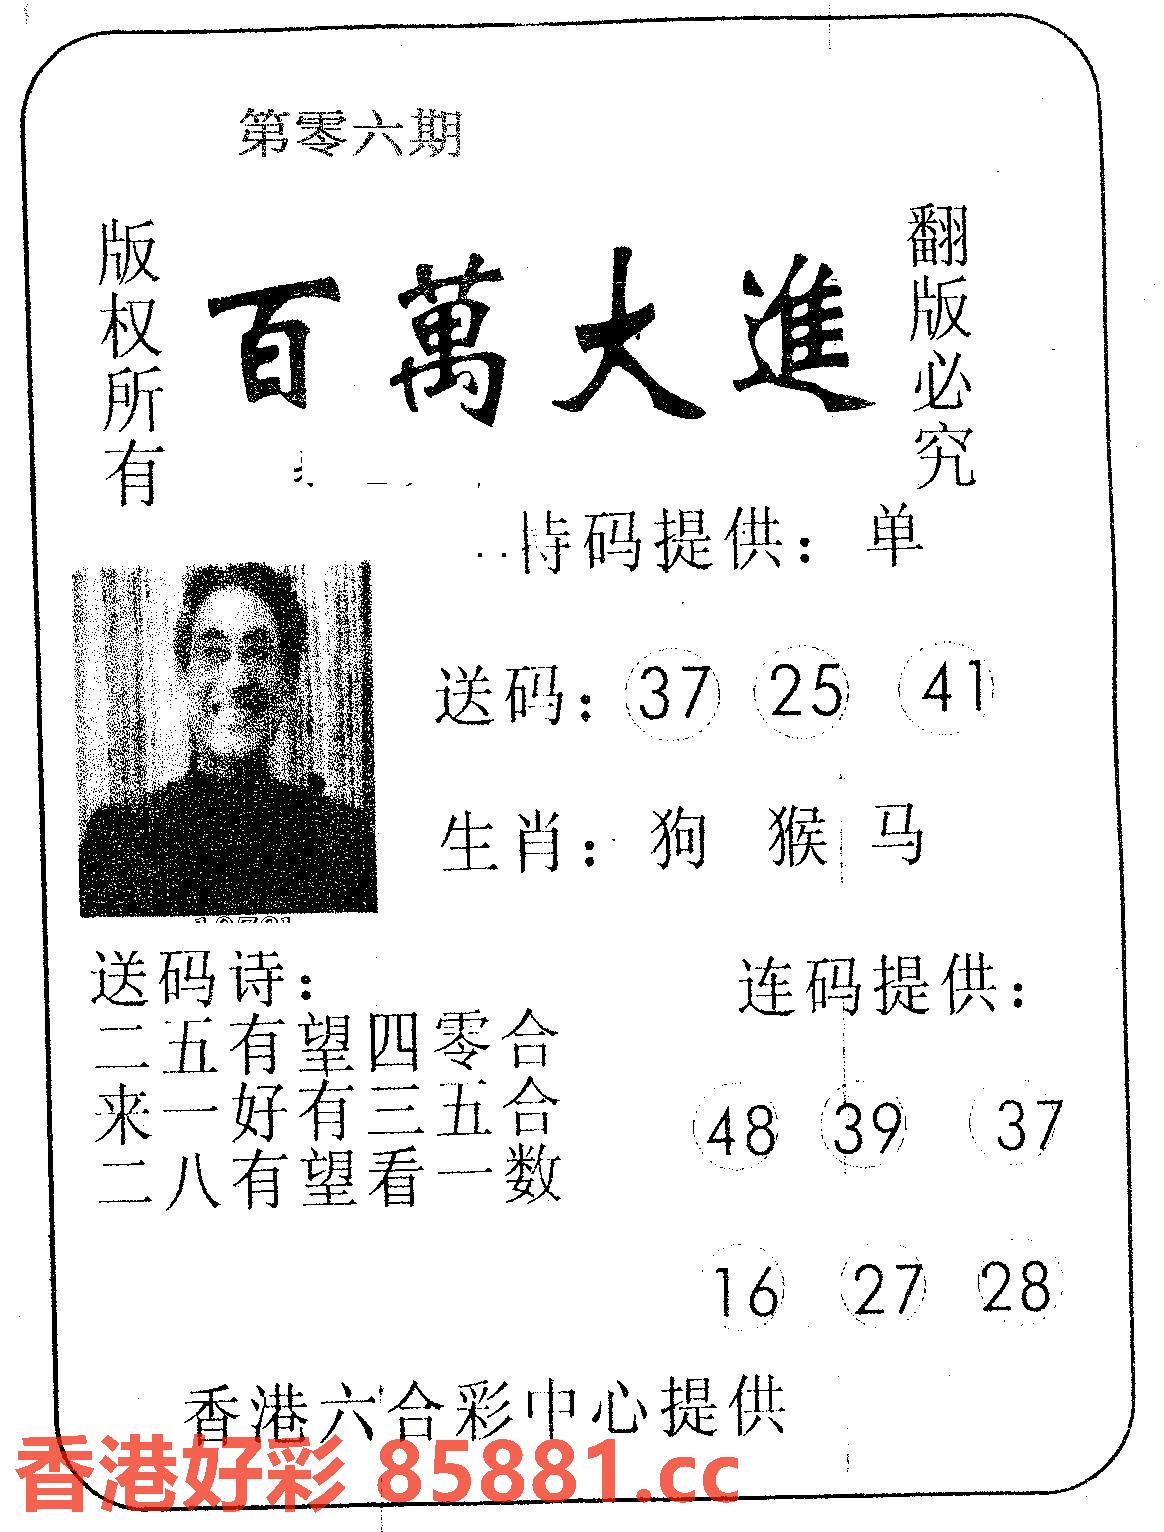 第零六期
版权所有
百萬大進
翻版必究
特码提供：单
送码：37 25 41
生肖：狗 猴 马
送码诗：
二五有望四零合
来一好有三五合
二八有望看一数
连码提供：
48 39 37
16 27 28
香港六合彩中心提供
香港好彩 85881.cc